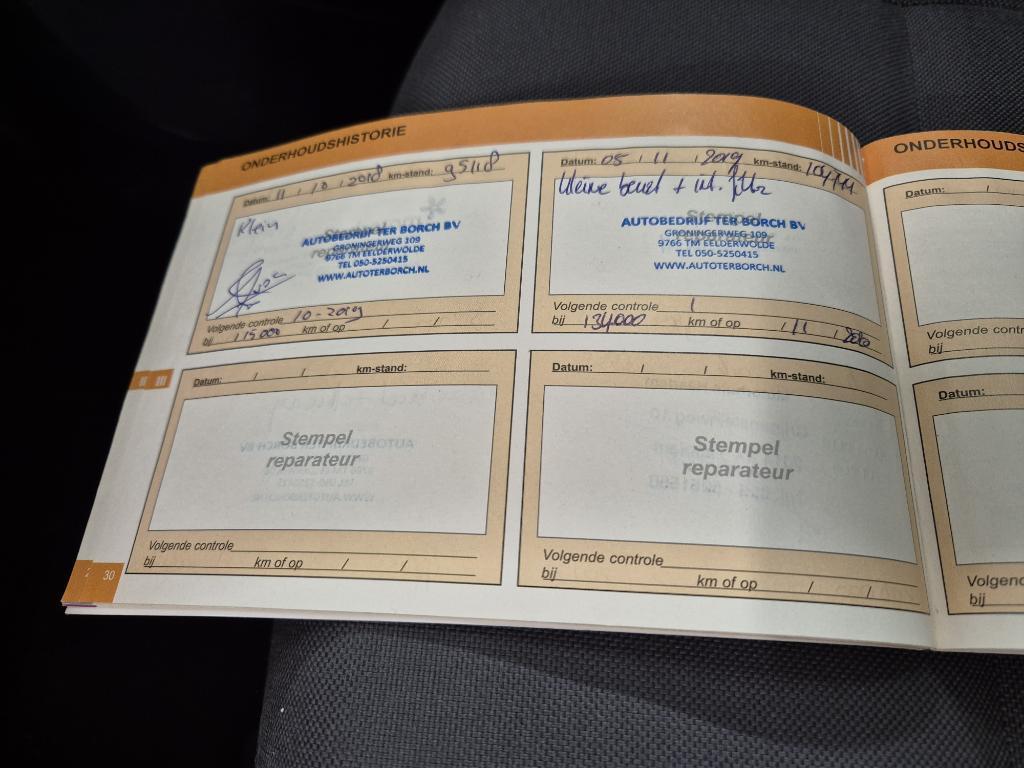 ONDERHOUDSHISTORIE
Datum: 11 / 10 / 2018 km-stand: 95118
Klein
Stempel
reparateur
AUTOBEDRIJF TER BORCH BV
GRONINGERWEG 109
9766 TM EELDERWOLDE
TEL 050-5250415
WWW.AUTOTERBORCH.NL
Volgende controle 10-2019
bij 115000 km of op / /
Datum: 05 / 11 / 2019 km-stand:
kleine beurt + int.
Stempel
reparateur
AUTOBEDRIJF TER BORCH BV
GRONINGERWEG 109
9766 TM EELDERWOLDE
TEL 050-5250415
WWW.AUTOTERBORCH.NL
Volgende controle
bij 134000 km of op / 11 / 2020
Datum: / / km-stand:
Stempel
reparateur
Volgende controle
bij km of op / /
Datum: / / km-stand:
Stempel
reparateur
Volgende controle
bij km of op / /
30
ONDERHOUDS
Datum: /
Volgende contr
bij
Datum:
Volgen
bij